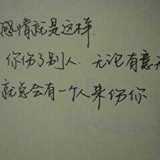 感情就是这样
你伤了别人 无论有意无
就总会有一个人来伤你